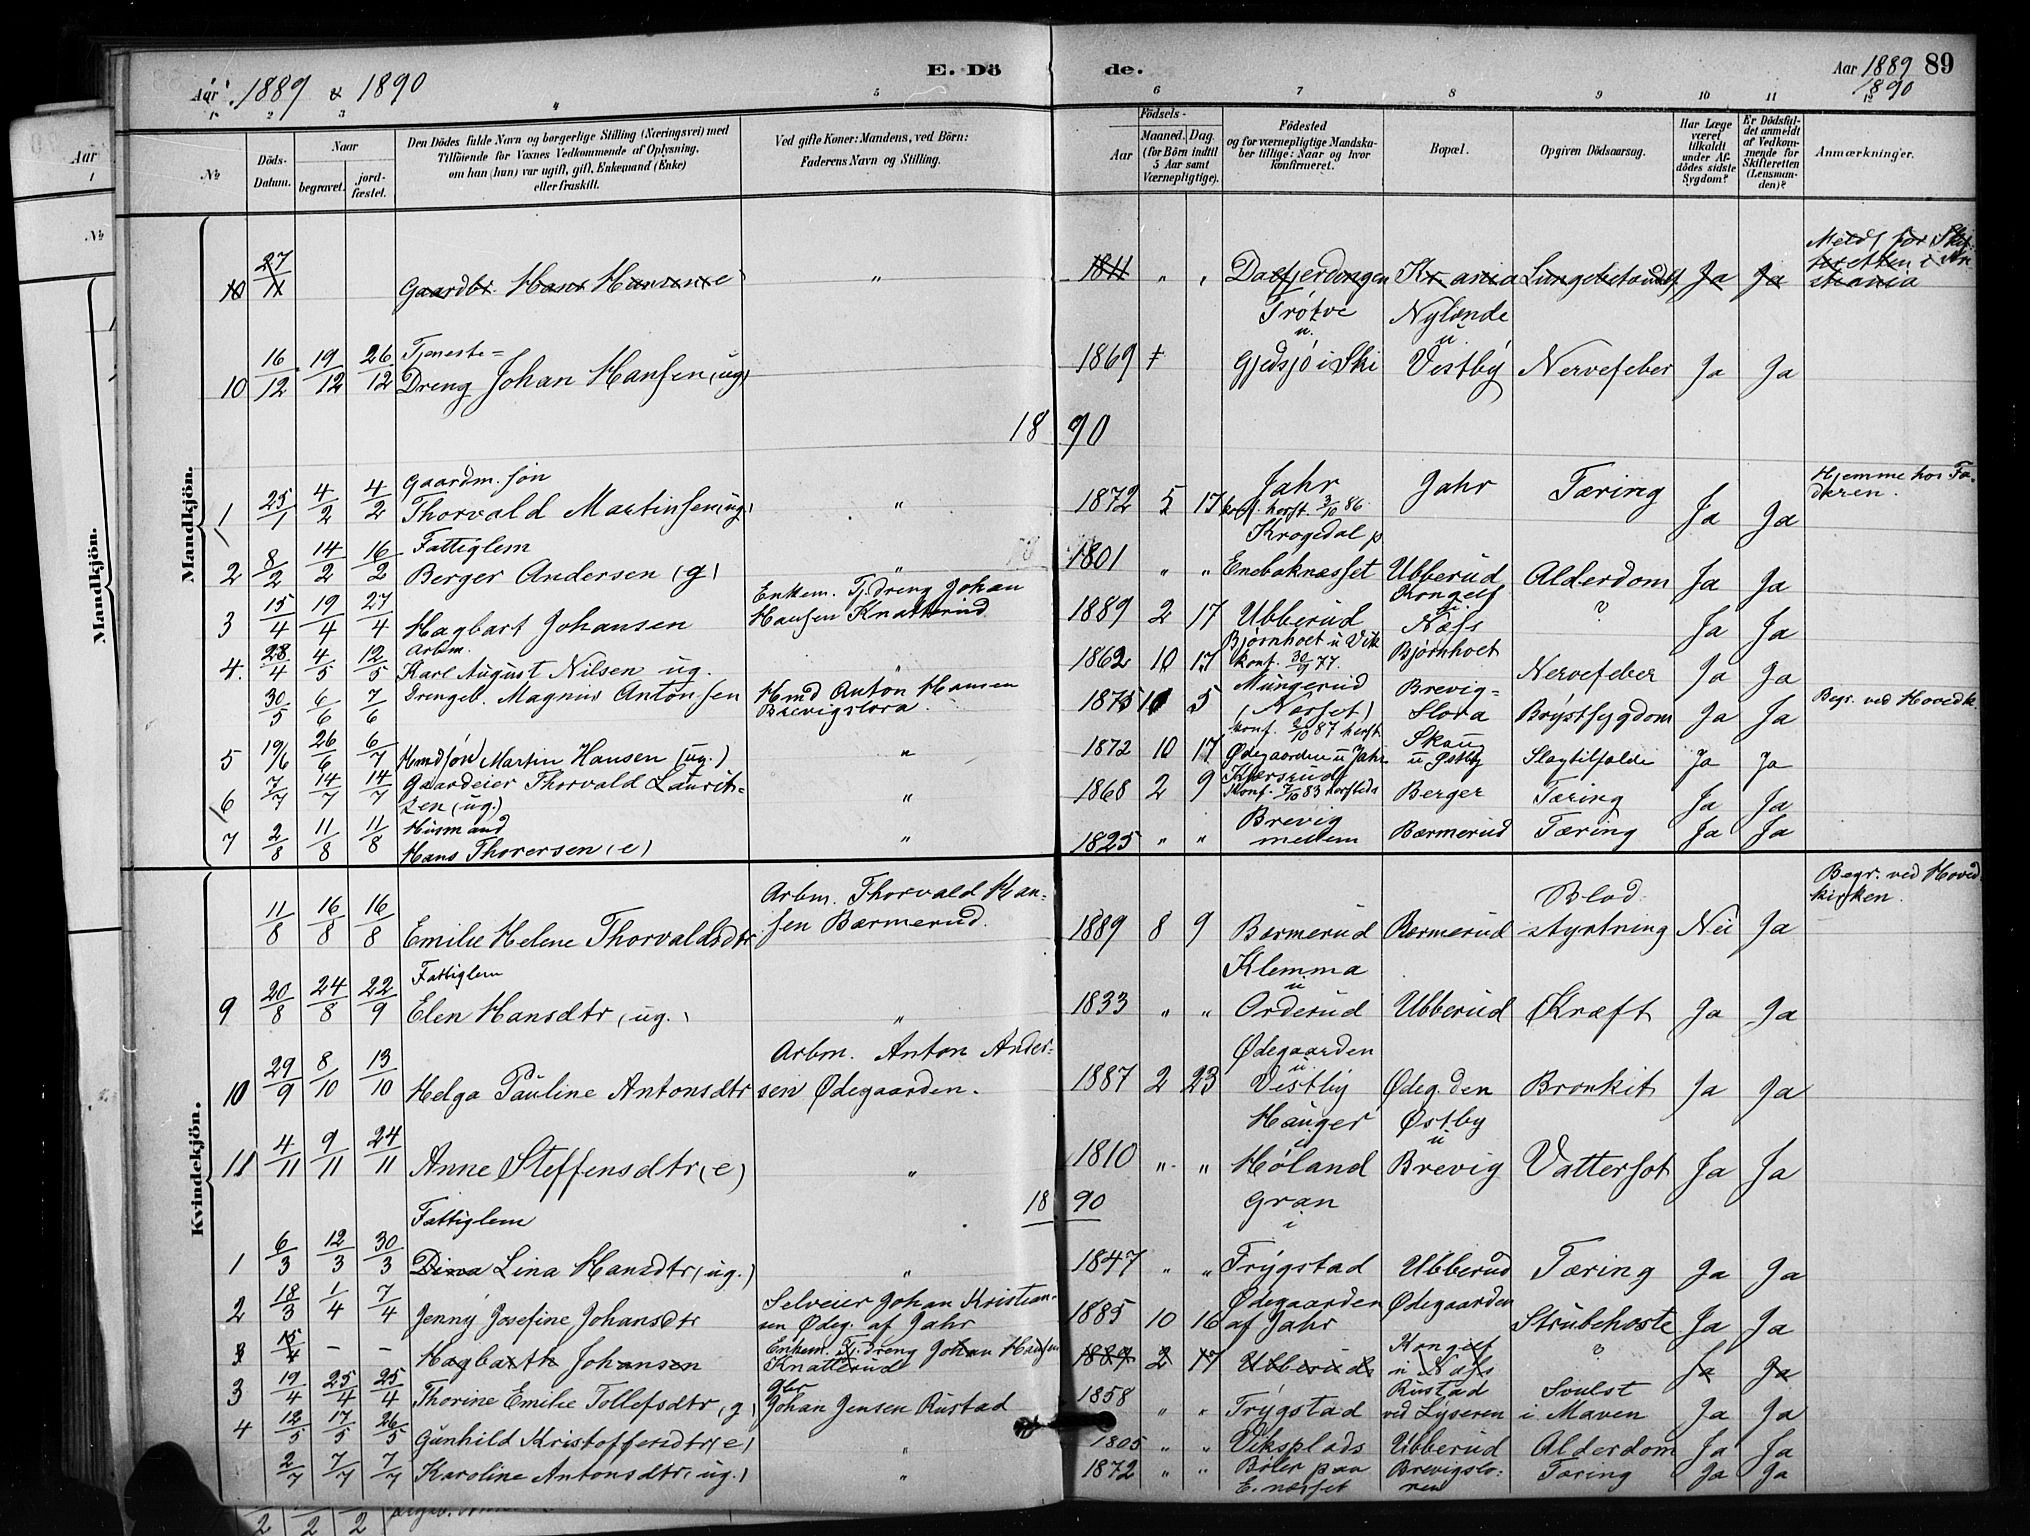 Aar 1889 & 1890
E. Dö
de.
Aar 1889 89
1890
1 2 3 4 5 6 7 8 9 10 11 12
No
Döds-Datum.
Naar
begravet. jordfæstet.
Den Dödes fulde Navn og borgerlige Stilling (Næringsvei) med
Tilföiende for Voxnes Vedkommende af Oplysning,
om han (hun) var ugift, gift, Enkemand (Enke)
eller fraskilt.
Ved gifte Koner: Mandens, ved Börn:
Faderens Navn og Stilling.
Födsels-
Aar
Maaned. Dag.
(for Börn indtil
5 Aar samt
Værnepligtige).
Födested
og for værnepligtige Mandska-
ber tillige: Naar og hvor
konfirmeret.
Bopæl.
Opgiven Dödsaarsag.
Har Læge
været
tilkaldt
under Af-
dödes sidste
Sygdom?
Er Dödsfal-
det anmeldt
af Vedkom-
mende for
Skifteretten
(Lensman-
den)?
Anmærkninger.
Mandkjön.
10 27/11 Gaardbr. Hans Hansen e " 1811 " " Dalfjerdingen Kr.ania Lungebetændels Ja Ja Meldt for Skif-
teretten i Kri
stiania
Trötve Nylænde
u. u
10 16/12 19/12 26/12 Tjeneste=
Dreng Johan Hansen (ug) 1869 Gjedsjö i Ski Vestby Nervefeber Ja Ja
1890
1 25/1 4/2 4/2 Gaardm. sön
Thorvald Martinsen (ug) " 1872 5 17 Jahr Jahr Tæring Ja Ja Hjemme hos Fa-
deren.
konf. herst. 3/10 86.
2 8/2 14/2 16/2 Fattiglem
Berger Andersen (g) " 1801 " " Krogedal p
Enebaknæsset Ubberud Alderdom Ja Ja
3 15/4 19/4 27/4 Hagbart Johansen Enkem. Tj.dreng Johan
Hansen Knatterud 1889 2 17 Ubberud Kongelf
u. Næss ? Ja Ja
4. 28/4 4/5 12/5 Arbm.
Karl August Nilsen ug. " 1862 10 17 Bjørnhoet u Vik
konf. 30/9 77. Bjørnhoet Nervefeber Ja Ja
30/5 6/6 7/6 Drengeb. Magnus Antonsen Hmd Anton Hansen
Brevigslora. 1875 10 5 Mungerud
(Næsset) Brevig=
slora Brystsygdom Ja Ja Begr. ved Hovedk.
5 19/6 26/6 6/7 Hmdsön Martin Hansen (ug.) " 1872 10 17 konf. 2/10 87 herst
Ødegaarden u Jahr Skaug
u Østby Slagtilfælde Ja Ja
6 7/7 14/7 14/7 Gaardeier Thorvald Laurit-
sen (ug.) " 1868 2 9 Kjærsrud
Konf. 7/10 83 hersteds Berger Tæring Ja Ja
7 2/8 11/8 11/8 Husmand
Hans Thorersen (e) " 1825 " " Brevig
mellem Bærmerud Tæring Ja Ja
Kvindekjön.
11/8 16/8 16/8 Emilie Helene Thorvaldsdtr Arbm. Thorvald Han-
sen Bærmerud. 1889 8 9 Bærmerud Bærmerud Blod
styrtning Nei Ja Begr. ved Hoved-
kirken.
9 20/8 24/8 22/9 Fattiglem
Elen Hansdtr (ug.) " 1833 " " Klemma
u
Orderud Ubberud Kræft Ja Ja
10 29/9 8/10 13/10 Helga Pauline Antonsdtr Arbm. Anton Ander-
sen Ødegaarden. 1887 2 23 Ødegaarden
u.
Vestby Ødeg.den Bronkit Ja Ja
11 4/11 9/11 24/11 Anne Steffensdtr (e) " 1810 " " Hauger
i
Høland Østby
u
Brevig Vattersot Ja Ja
1890
1 6/3 12/3 30/3 Fattiglem
Dina Lina Hansdtr (ug.) " 1847 " " Gran
i
Trygstad Ubberud Tæring Ja Ja
2 18/3 1/4 7/4 Jenny Josefine Johansdtr Selveier Johan Kristian-
sen Ødeg. af Jahr 1885 10 16 Ødegaarden
af Jahr Ødegaarden Strubehoste Ja Ja
3 15/4 - - Hagbarth Johansen Enkem. Tj.dreng Johan Hansen
Knatterud 1889 2 17 Ubberud Kongelf
u Næfs ? Ja Ja
3 19/4 25/4 25/4 Thorine Emilie Tollefsdtr (g) Gbr
Johan Jensen Rustad 1858 " " Trygstad Rustad
ved Lyseren Svulst
i Maven Ja Ja
4 12/5 17/5 26/5 Gunhild Kristoffersdtr (e) " 1805 " " Viksplads Ubberud Alderdom Ja Ja
2/7 7/7 7/7 Karoline Antonsdtr (ug.) " 1872 " " Bøler paa
E. næsset Brevigslo-
ren Tæring Ja Ja